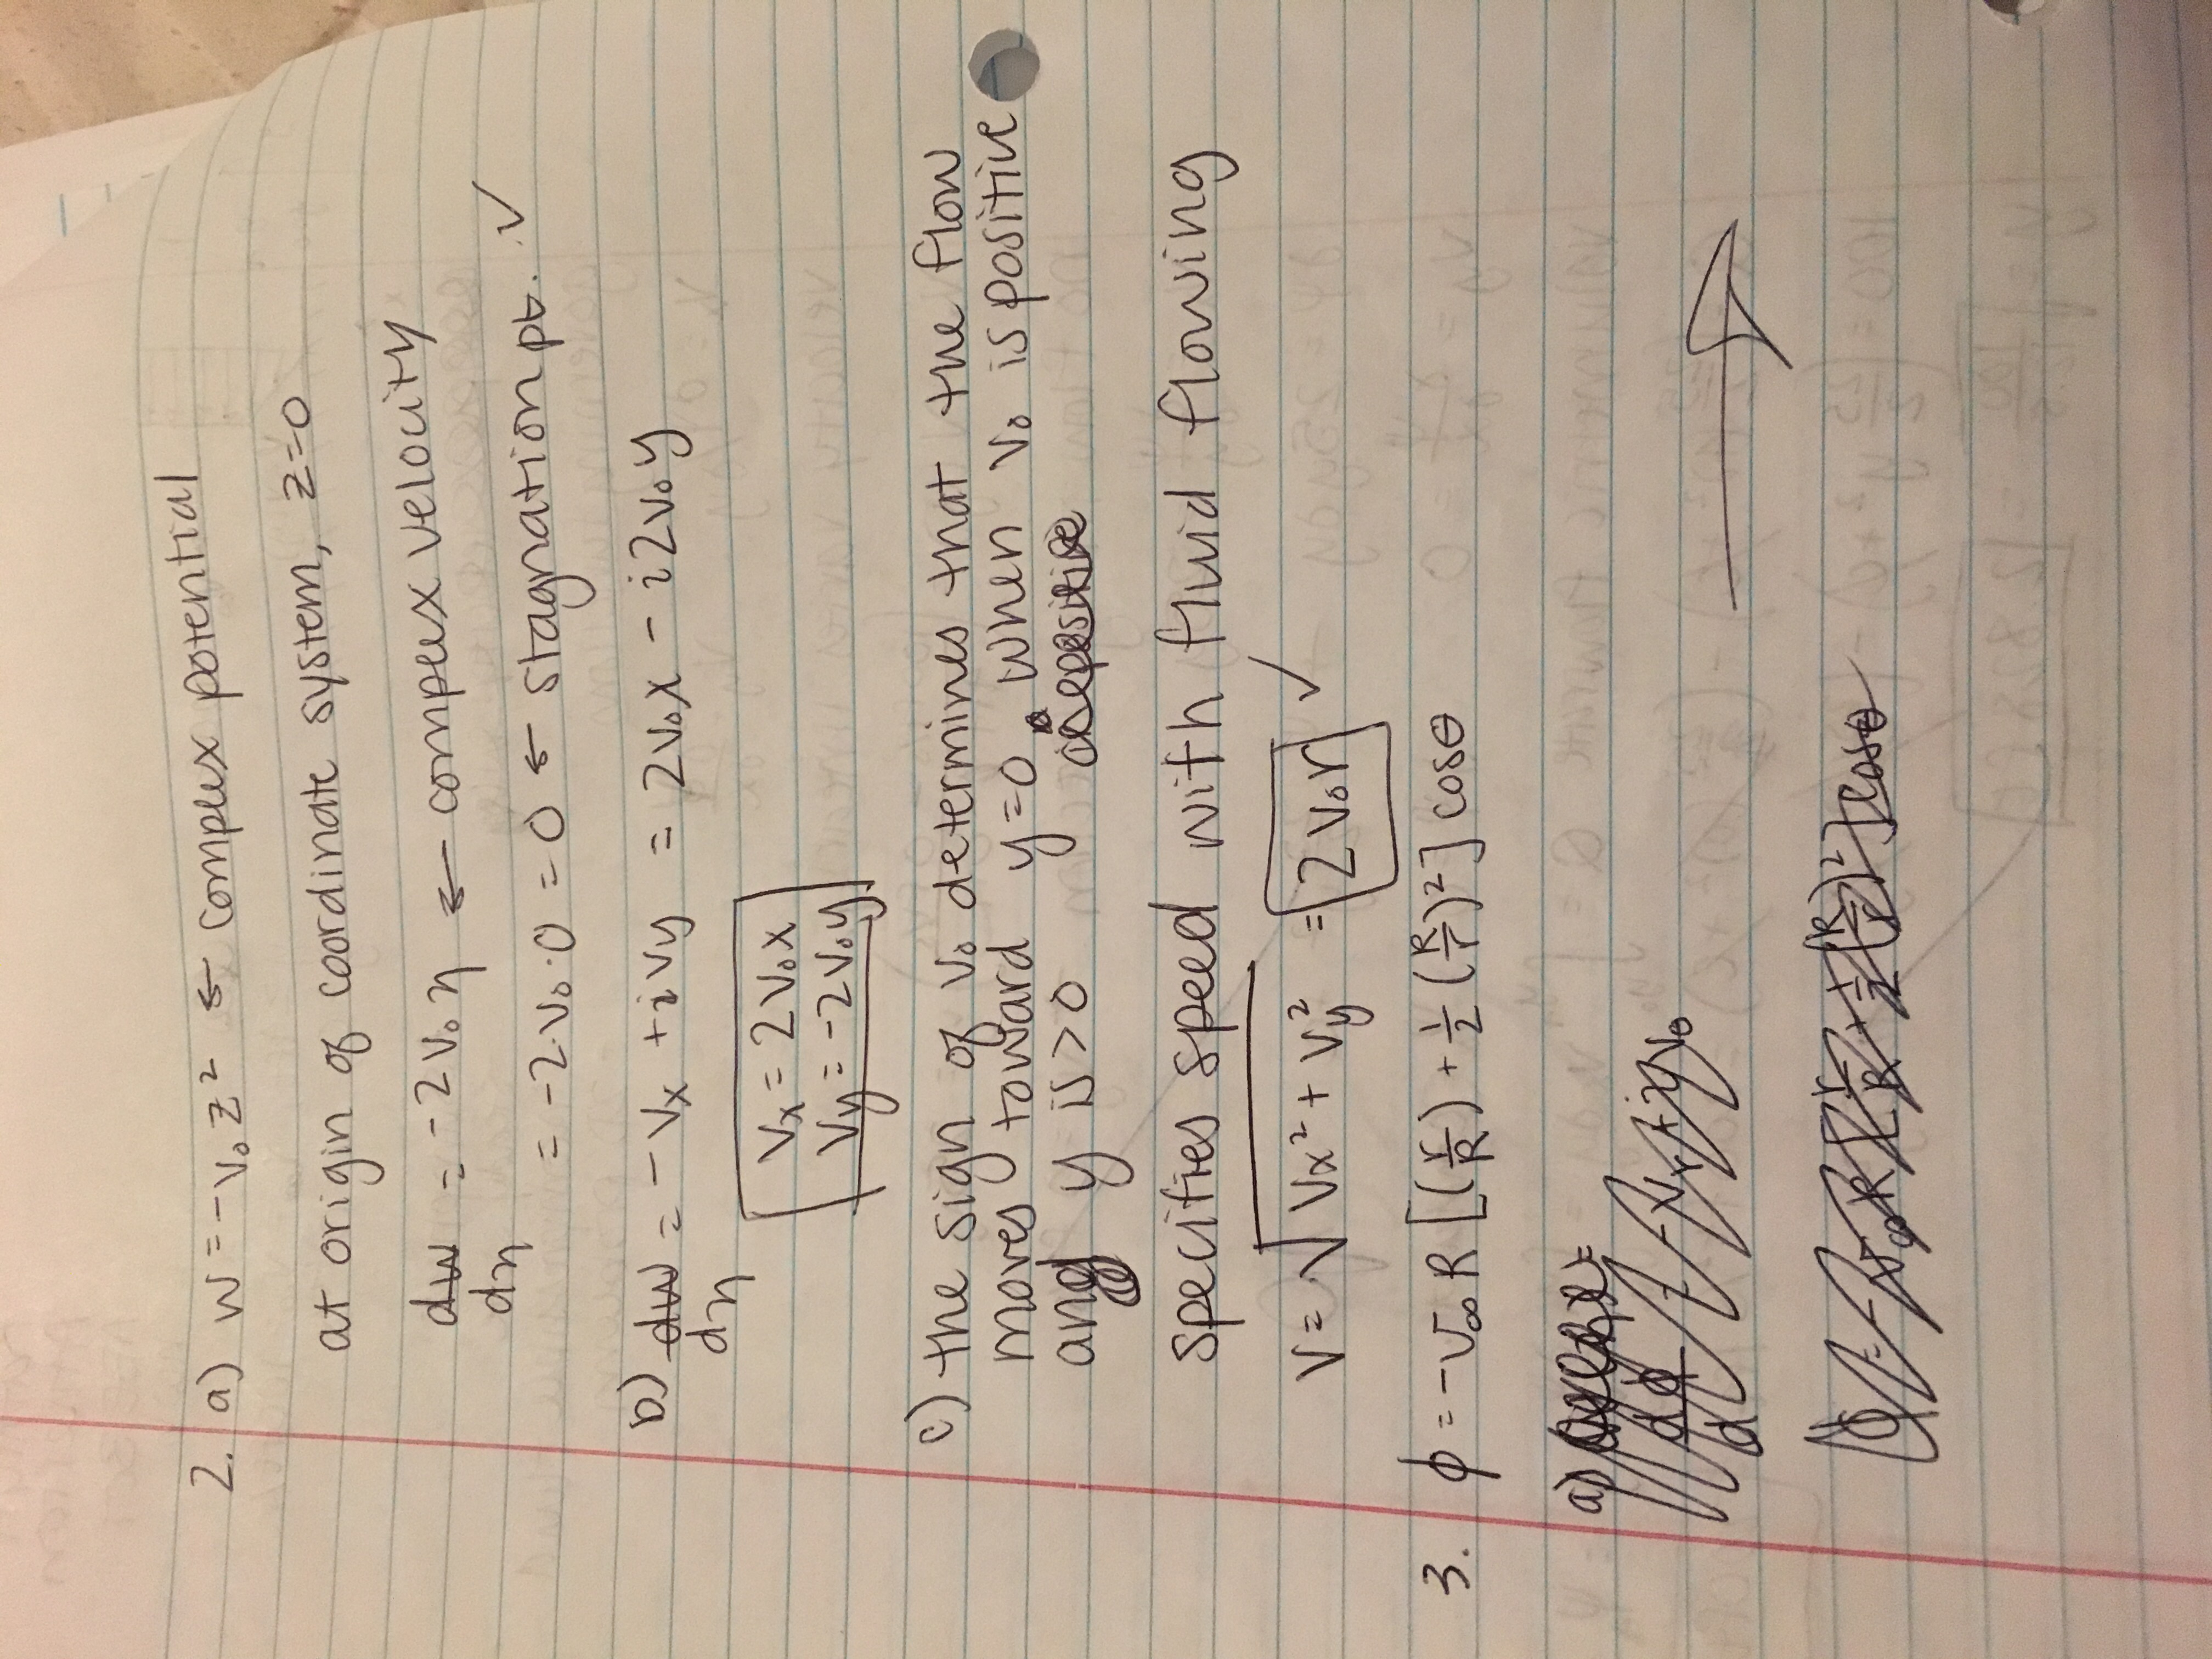 2. a) w = -v₀ z² ← complex potential
at origin of coordinate system, z=0
dw/dη = -2v₀η ← complex velocity
= -2·v₀·0 = 0 ← stagnation pt. ✓
b) dw/dη = -Vx + iVy = 2v₀x - i2v₀y
Vx = 2v₀x
Vy = -2v₀y
c) the sign of v₀ determines that the flow
moves toward y=0. when v₀ is positive
and y is >0
specifies speed with fluid flowing
V = √(Vx² + Vy²) = 2v₀r ✓
3. ϕ = -v∞ R [(r/R) + 1/2 (R/r)²] cosθ
a)
dϕ/d = -Vr + iVθ
ϕ = -v∞ R [r/R + 1/2 (R/r)²] cosθ